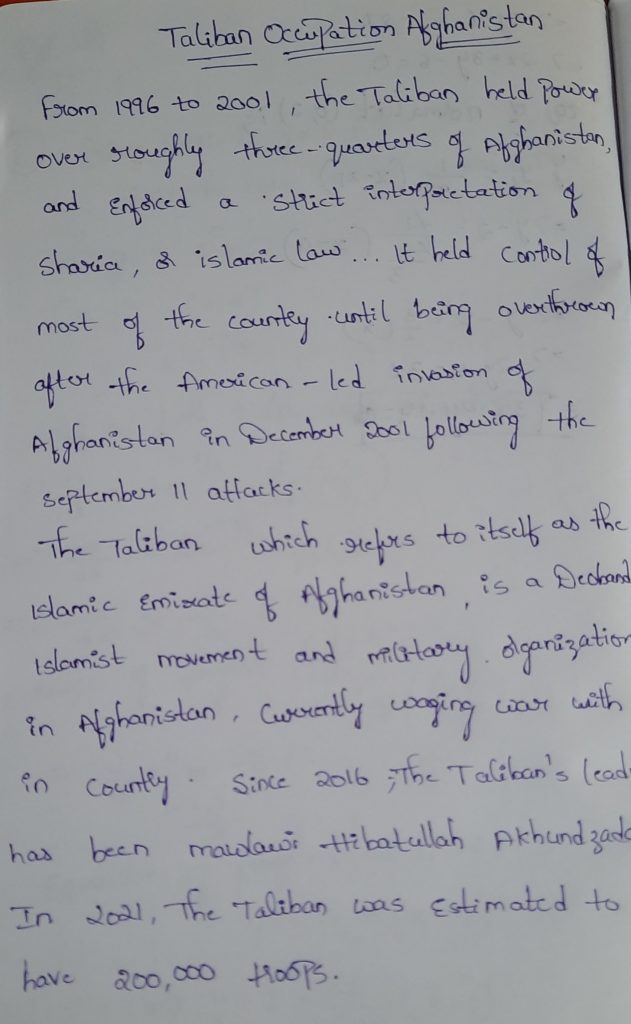 Taliban Occupation Afghanistan
From 1996 to 2001, the Taliban held Power
over roughly three-quarters of Afghanistan,
and enforced a strict interpretation of
Sharia, or islamic law... It held control of
most of the country until being overthrown
after the American-led invasion of
Afghanistan in December 2001 following the
september 11 attacks.
The Taliban which refers to itself as the
islamic Emirate of Afghanistan, is a Deoband
Islamist movement and military organization
in Afghanistan, Currently waging war with
in country. Since 2016, The Taliban's lead
has been mawlawi Hibatullah Akhundzada
In 2021, The Taliban was Estimated to
have 200,000 troops.